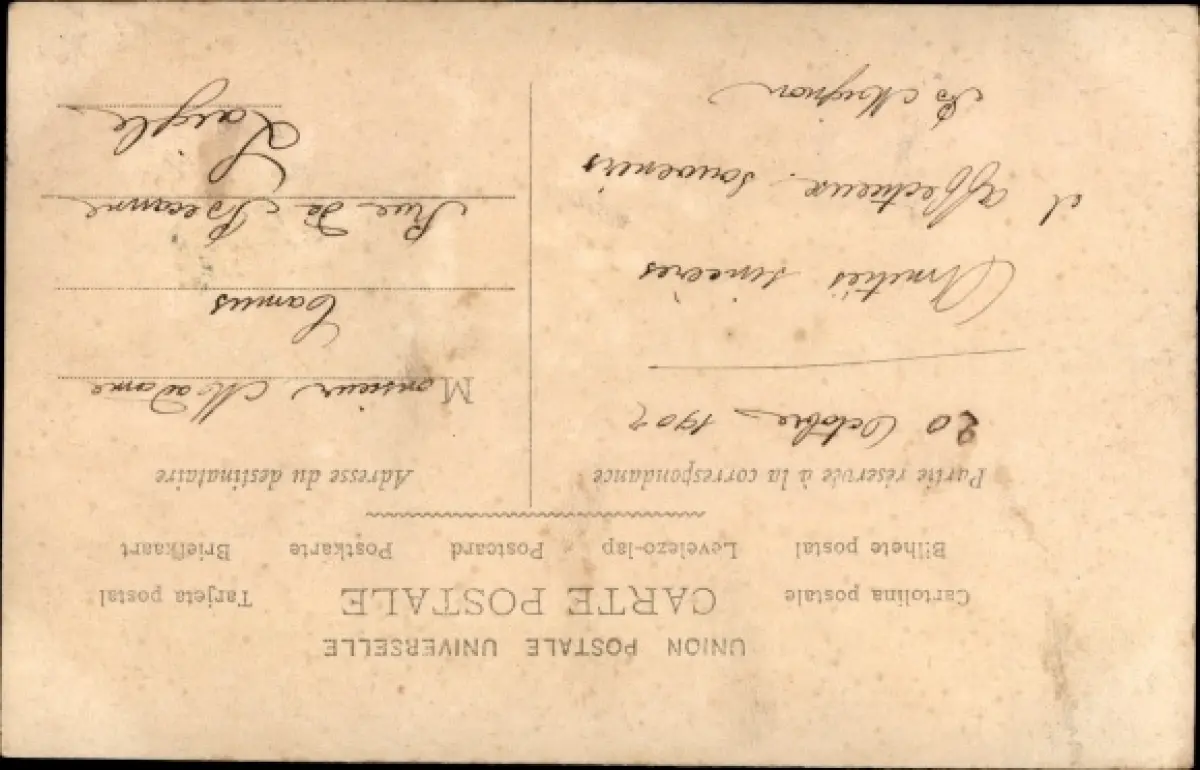 UNION POSTALE UNIVERSELLE
Cartolina postale CARTE POSTALE Tarjeta postal
Bilhete postal Levelezo-lap Postcard Postkarte Briefkaart
Partie réservée à la correspondance
20 Octobre 1907
Amitiés sincères
et affectueux souvenirs
Mignon
Adresse du destinataire
Monsieur Madame
Camus
Rue de Bécanne
Laigle